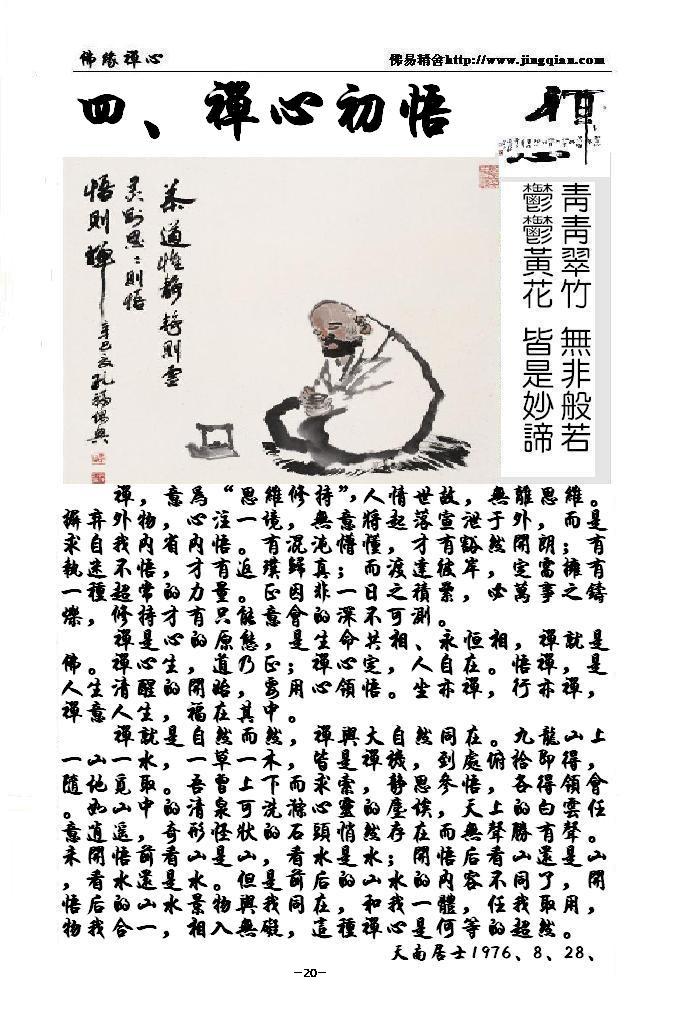 佛緣禪心
佛易精舍http://www.jingqian.com
四、禪心初悟
青青翠竹 無非般若
鬱鬱黃花 皆是妙諦
慕道惟靜靜則靈
靈則思思則悟
悟則禪
禪，意爲“思維修持”，人情世故，無離思維。
摒弃外物，心注一境，無意將起落宣泄于外，而是
求自我内省内悟。有混沌懵懂，才有豁然開朗；有
執迷不悟，才有返璞歸真；而渡達彼岸，定需擁有
一種超常的力量。正因非一日之積累，必萬事之鑄
爍，修持才有只能意會的深不可測。
禪是心的原態，是生命共相、永恒相，禪就是
佛。禪心生，道乃正；禪心定，人自在。悟禪，是
人生清醒的開始，要用心領悟。坐亦禪，行亦禪，
禪意人生，福在其中。
禪就是自然而然，禪與大自然同在。九龍山上
一山一水，一草一木，皆是禪機，到處俯拾即得，
隨他覓取。吾曾上下而求索，静思參悟，各得領會
。如山中的清泉可洗滌心靈的塵埃，天上的白雲任
意逍遥，奇形怪狀的石頭悄然存在而無聲勝有聲。
未開悟前看山是山，看水是水；開悟后看山還是山
，看水還是水。但是前后的山水的内容不同了，開
悟后的山水景物與我同在，和我一體，任我取用，
物我合一，相入無礙，這種禪心是何等的超然。
天南居士1976、8、28、
—20—